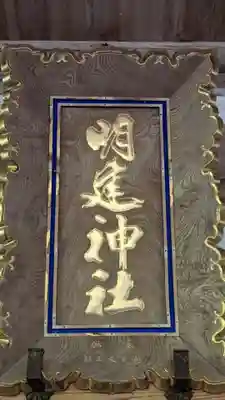 明建神社